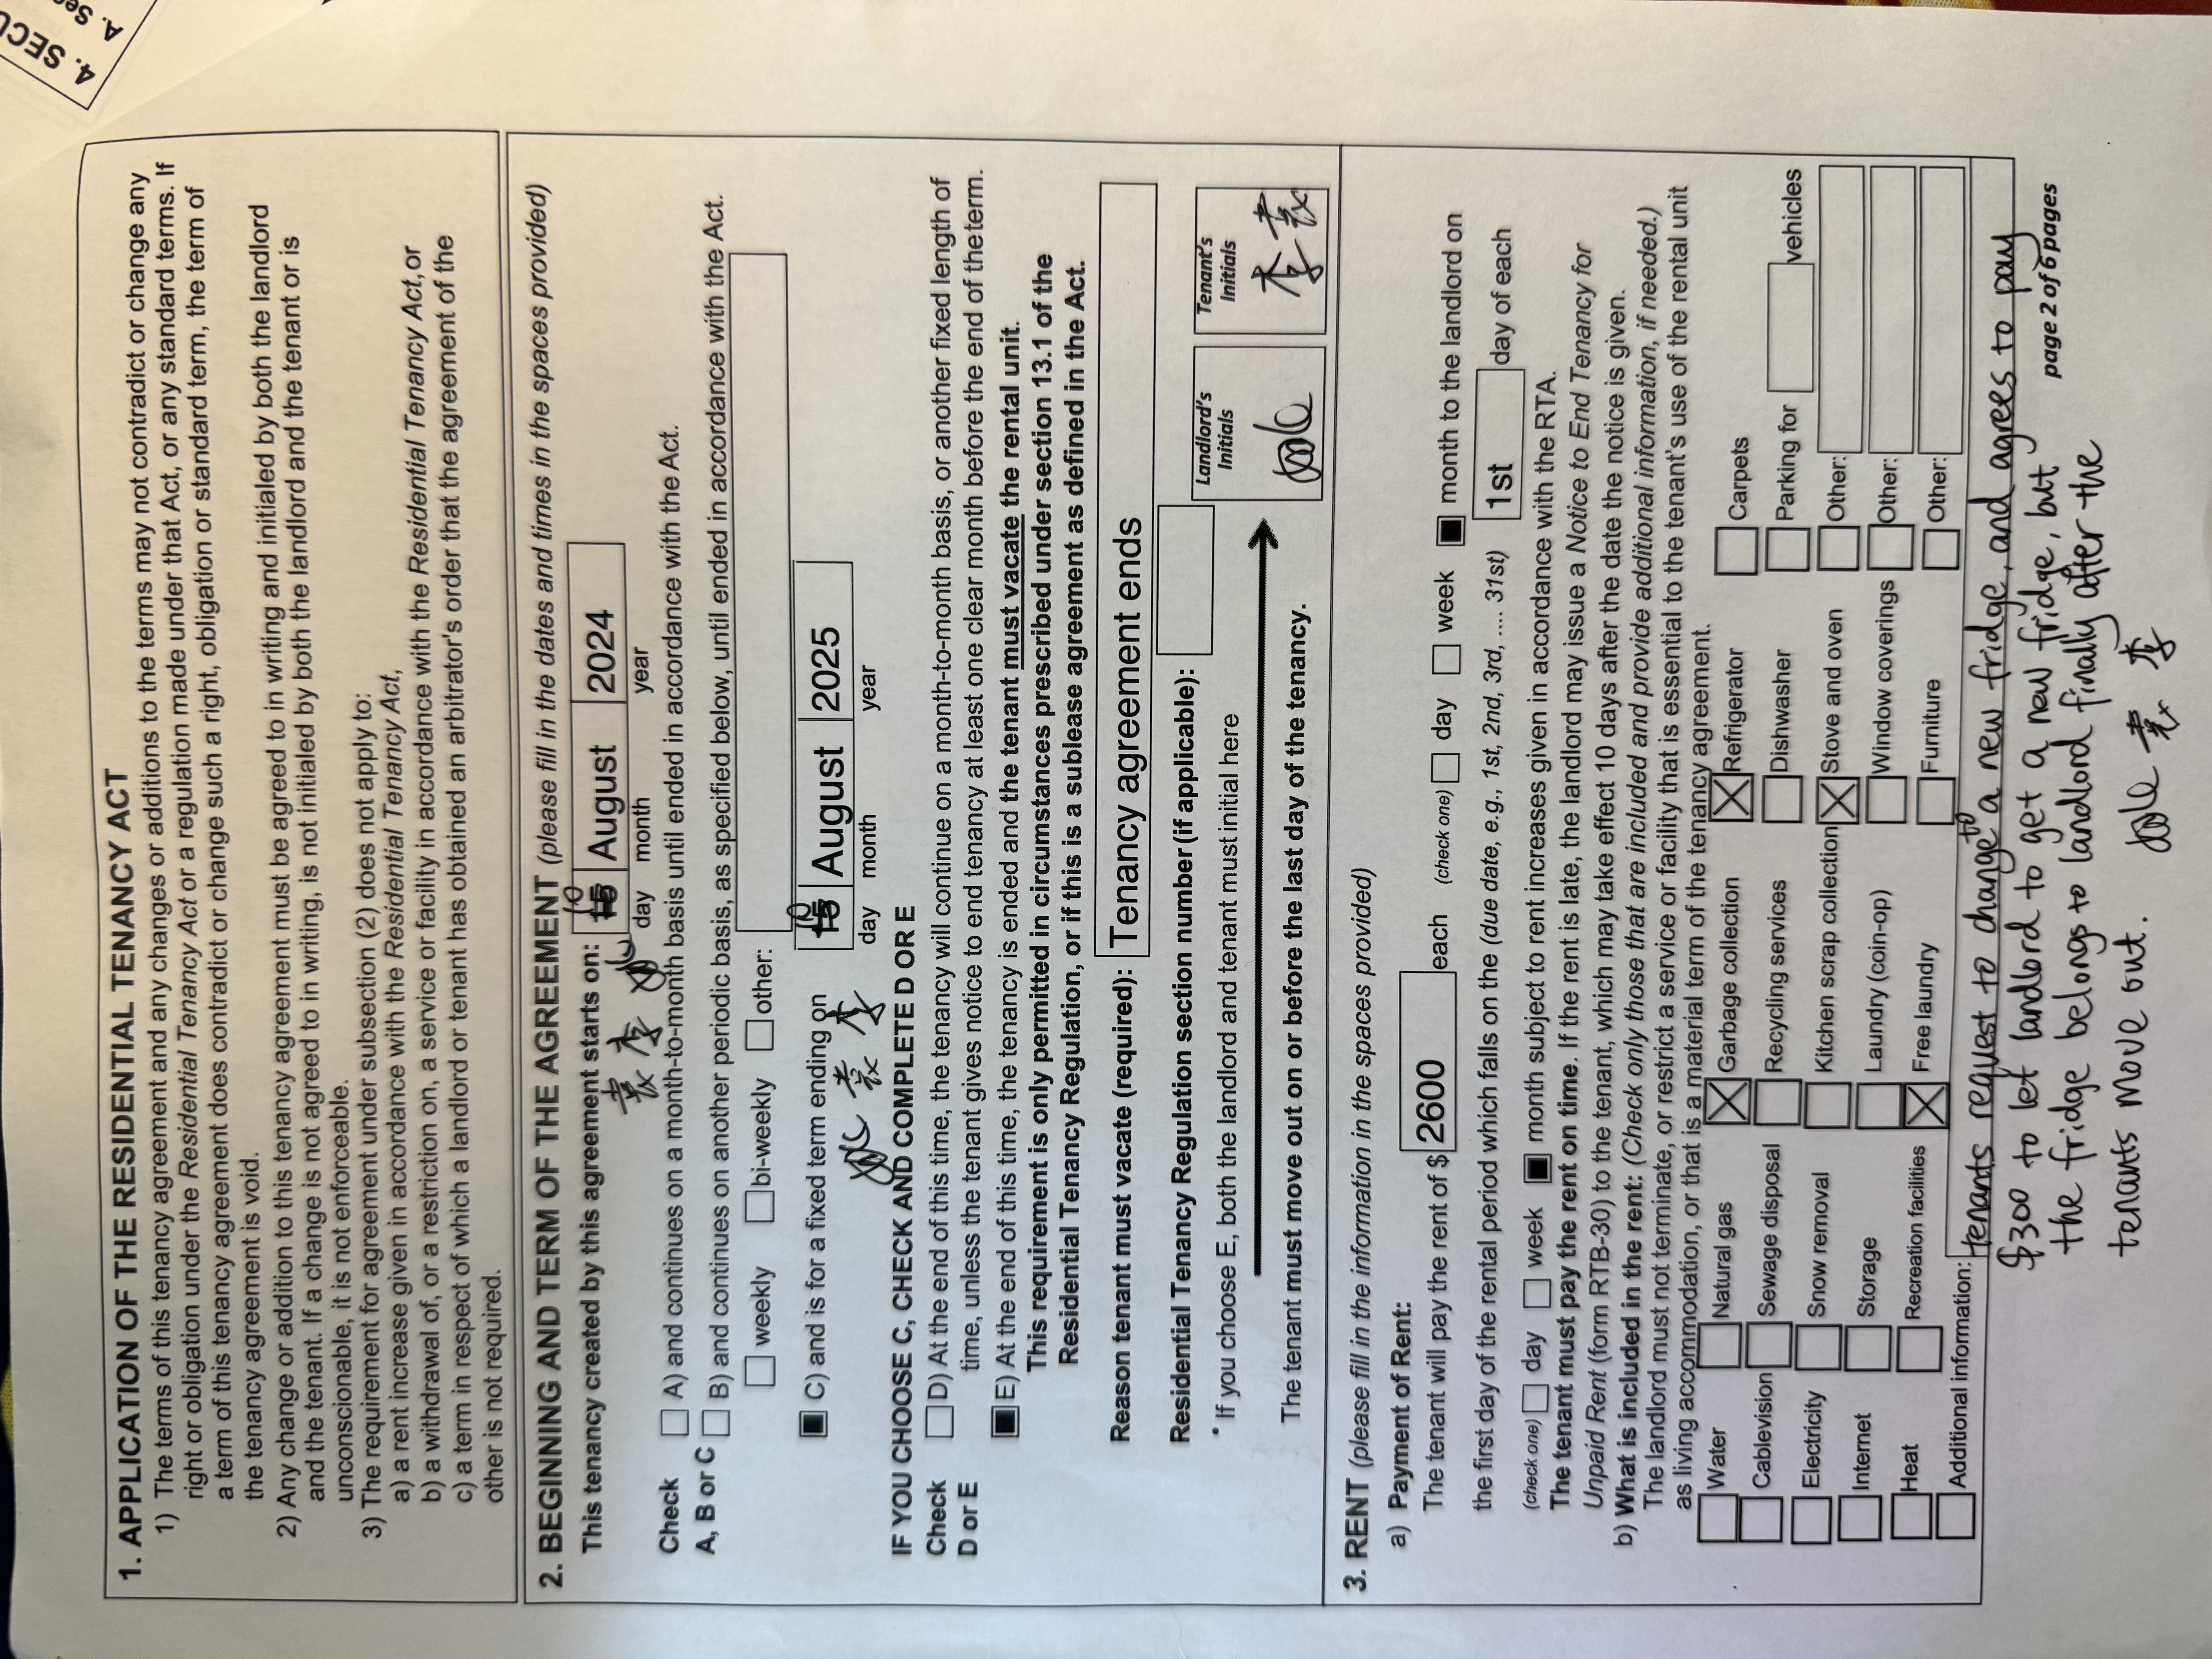 4. SECU
A. Sec
1. APPLICATION OF THE RESIDENTIAL TENANCY ACT
1) The terms of this tenancy agreement and any changes or additions to the terms may not contradict or change any
right or obligation under the Residential Tenancy Act or a regulation made under that Act, or any standard terms. If
a term of this tenancy agreement does contradict or change such a right, obligation or standard term, the term of
the tenancy agreement is void.
2) Any change or addition to this tenancy agreement must be agreed to in writing and initialed by both the landlord
and the tenant. If a change is not agreed to in writing, is not initialed by both the landlord and the tenant or is
unconscionable, it is not enforceable.
3) The requirement for agreement under subsection (2) does not apply to:
a) a rent increase given in accordance with the Residential Tenancy Act,
b) a withdrawal of, or a restriction on, a service or facility in accordance with the Residential Tenancy Act, or
c) a term in respect of which a landlord or tenant has obtained an arbitrator's order that the agreement of the
other is not required.
2. BEGINNING AND TERM OF THE AGREEMENT (please fill in the dates and times in the spaces provided)
10
This tenancy created by this agreement starts on: 15 August 2024
袁 李
day month year
Check A) and continues on a month-to-month basis until ended in accordance with the Act.
A, B or C B) and continues on another periodic basis, as specified below, until ended in accordance with the Act.
weekly bi-weekly other:
10
C) and is for a fixed term ending on 15 August 2025
袁 李
day month year
IF YOU CHOOSE C, CHECK AND COMPLETE D OR E
Check D) At the end of this time, the tenancy will continue on a month-to-month basis, or another fixed length of
D or E time, unless the tenant gives notice to end tenancy at least one clear month before the end of the term.
E) At the end of this time, the tenancy is ended and the tenant must vacate the rental unit.
This requirement is only permitted in circumstances prescribed under section 13.1 of the
Residential Tenancy Regulation, or if this is a sublease agreement as defined in the Act.
Reason tenant must vacate (required): Tenancy agreement ends
Residential Tenancy Regulation section number (if applicable):
Landlord's Initials
Tenant's Initials
* If you choose E, both the landlord and tenant must initial here
李 袁
The tenant must move out on or before the last day of the tenancy.
3. RENT (please fill in the information in the spaces provided)
a) Payment of Rent:
The tenant will pay the rent of $ 2600 each (check one) day week month to the landlord on
the first day of the rental period which falls on the (due date, e.g., 1st, 2nd, 3rd, .... 31st) 1st day of each
(check one) day week month subject to rent increases given in accordance with the RTA.
The tenant must pay the rent on time. If the rent is late, the landlord may issue a Notice to End Tenancy for
Unpaid Rent (form RTB-30) to the tenant, which may take effect 10 days after the date the notice is given.
b) What is included in the rent: (Check only those that are included and provide additional information, if needed.)
The landlord must not terminate, or restrict a service or facility that is essential to the tenant's use of the rental unit
as living accommodation, or that is a material term of the tenancy agreement.
Water Natural gas Garbage collection Refrigerator Carpets
Cablevision Sewage disposal Recycling services Dishwasher Parking for vehicles
Electricity Snow removal Kitchen scrap collection Stove and oven Other:
Internet Storage Laundry (coin-op) Window coverings Other:
Heat Recreation facilities Free laundry Furniture Other:
Additional information: tenants request to change to a new fridge, and agrees to pay
$300 to let landlord to get a new fridge, but
page 2 of 6 pages
the fridge belongs to landlord finally after the
tenants move out. 袁 李